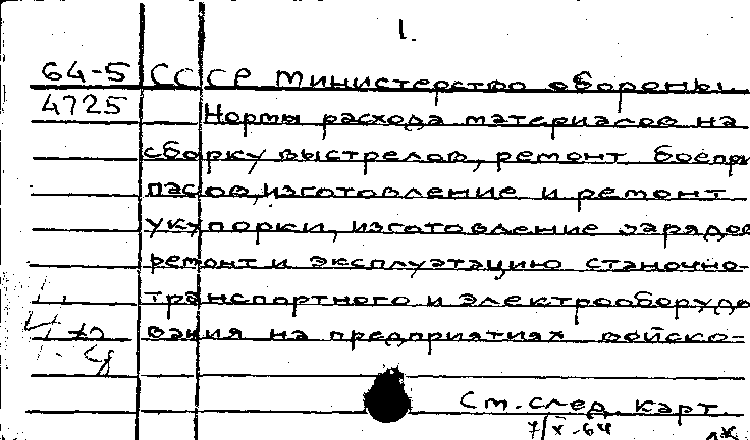 1.
64-5 СССР Министерство обороны.
4725 Нормы расхода материалов на
сборку выстрелов, ремонт боепри
пасов, изготовление и ремонт
укупорки, изготовление зарядов
ремонт и эксплуатацию станочно-
транспортного и электрооборудо
вания на предприятиях войско-
См. след. карт.
7/X-64